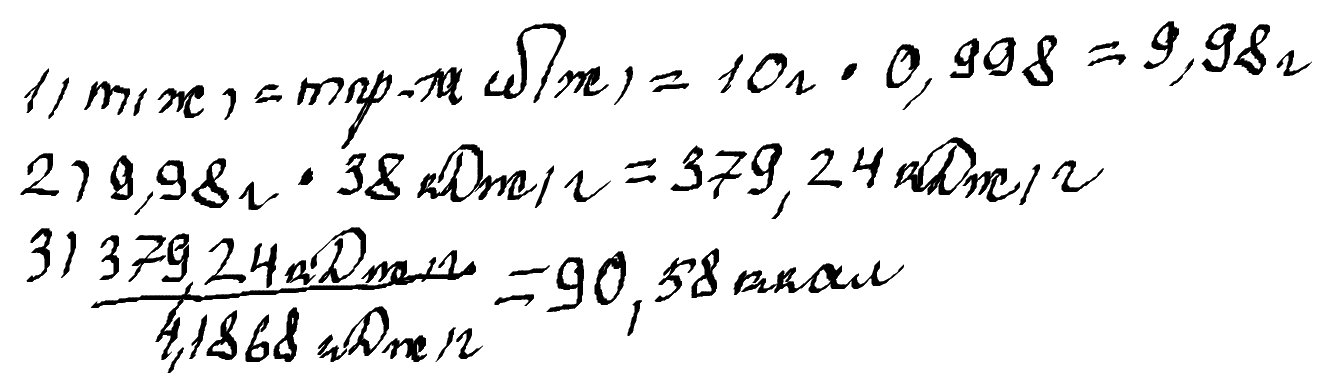 1) m(ж) = mпр-та ω(ж) = 10г · 0,998 = 9,98г
2) 9,98г · 38 кДж/г = 379,24 кДж/г
3) 379,24 кДж/г / 4,1868 кДж/г = 90,58 ккал